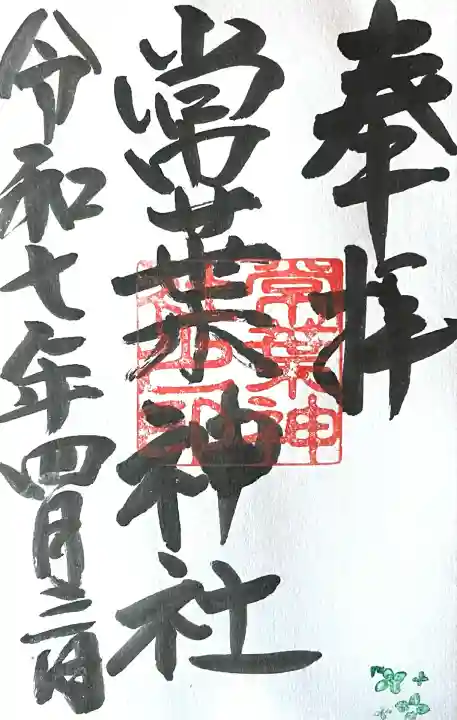 奉拝
常葉神社
常葉神
社印
令和七年四月三日